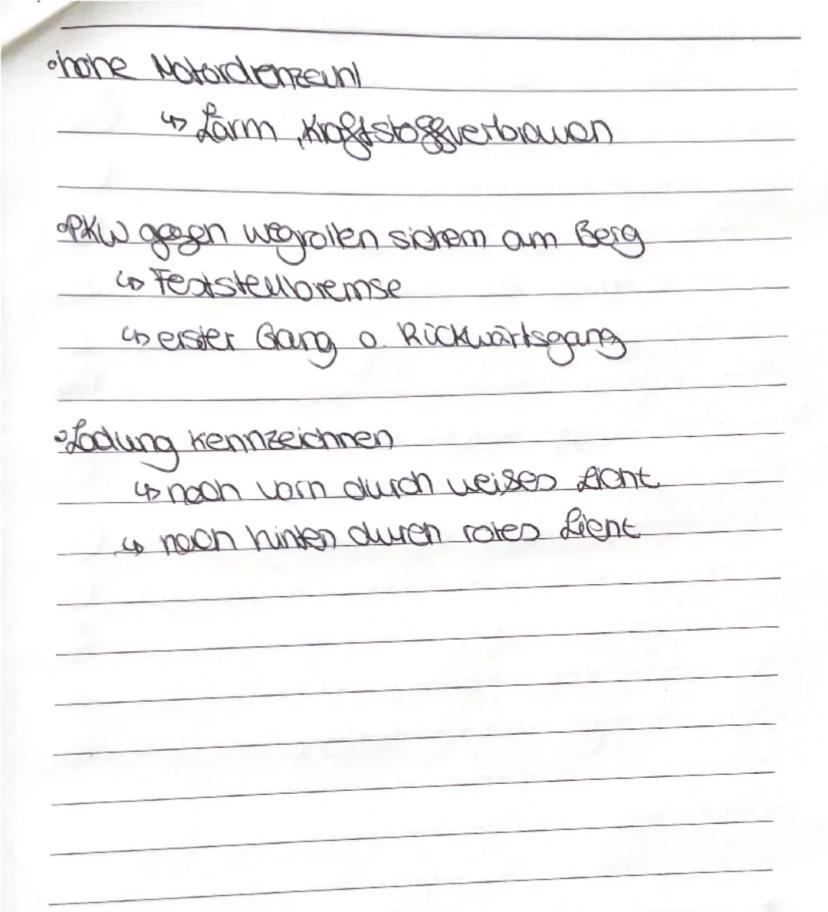 °hohe Motordrehzahl
↳ Lärm, Kraftstoffverbrauch
°PKW gegen wegrollen sichern am Berg
↳ Feststellbremse
↳ erster Gang o. Rückwärtsgang
°Ladung kennzeichnen
↳ nach vorn durch weises Licht
↳ nach hinten durch rotes Licht